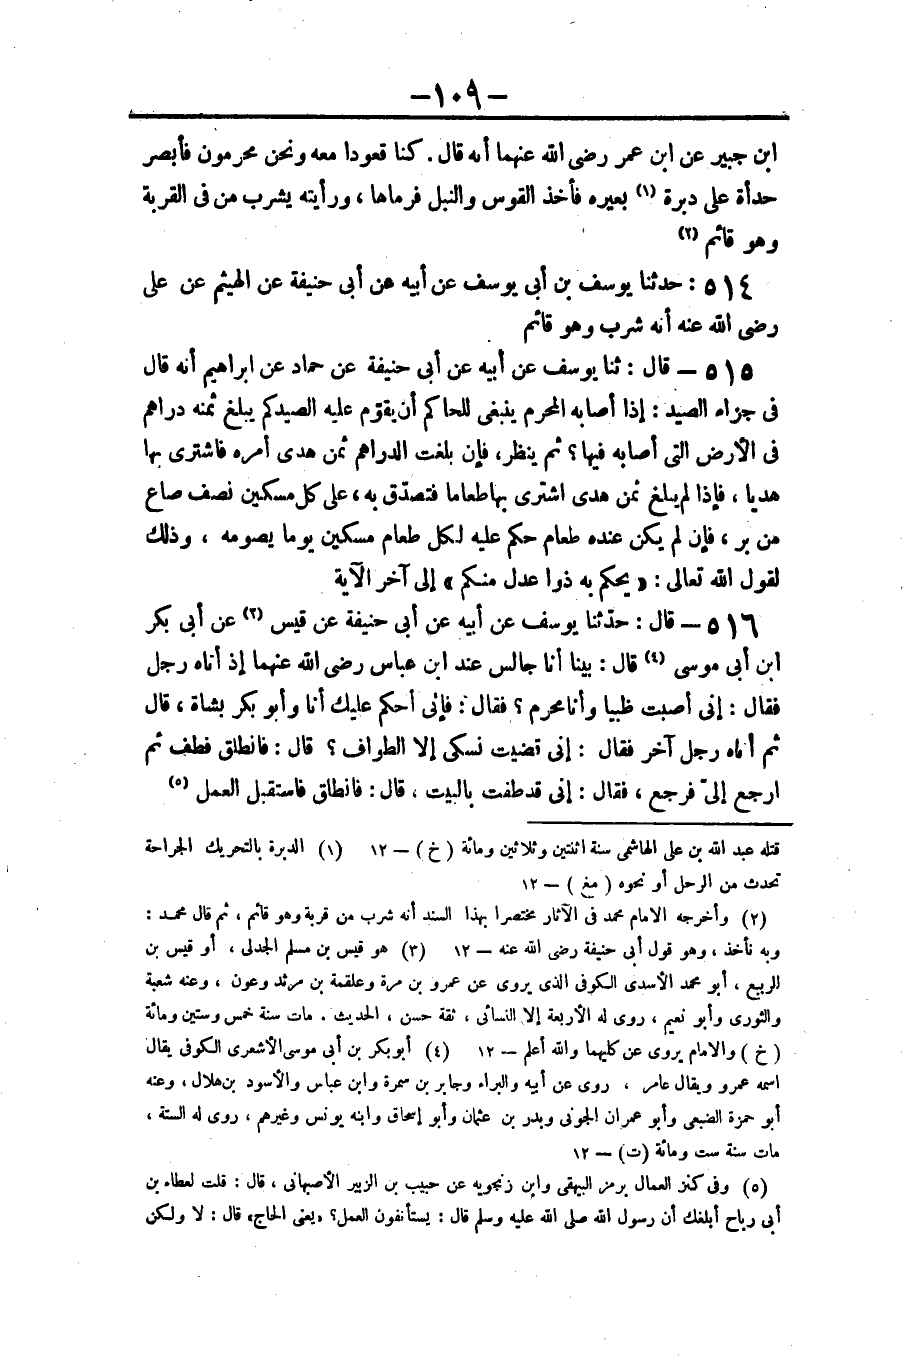 — ١٠٩ —
ابن جبير عن ابن عمر رضى الله عنهما أنه قال . كنا قعودا معه ونحن محرمون فأبصر
حدأة على دبرة (١) بعيره فأخذ القوس والنبل فرماها ، ورأيته يشرب من فى القربة
وهو قائم (٢)
٥١٤ : حدثنا يوسف بن أبى يوسف عن أبيه عن أبى حنيفة عن الهيثم عن على
رضى الله عنه أنه شرب وهو قائم
٥١٥ — قال : ثنا يوسف عن أبيه عن أبى حنيفة عن حماد عن ابراهيم أنه قال
فى جزاء الصيد : إذا أصابه المحرم ينبغى للحاكم أن يقوّم عليه الصيد كم يبلغ ثمنه دراهم
فى الأرض التى أصابه فيها ؟ ثم ينظر، فإن بلغت الدراهم ثمن هدى أمره فاشترى بها
هديا ، فإذا لم يبلغ ثمن هدى اشترى بها طعاما فتصدّق به ، على كل مسكين نصف صاع
من بر ، فإن لم يكن عنده طعام حكم عليه لكل طعام مسكين يوما يصومه ، وذلك
لقول الله تعالى : « يحكم به ذوا عدل منكم » إلى آخر الآية
٥١٦ — قال : حدّثنا يوسف عن أبيه عن أبى حنيفة عن قيس (٣) عن أبى بكر
ابن أبى موسى (٤) قال : بينا أنا جالس عند ابن عباس رضى الله عنهما إذ أتاه رجل
فقال : إنى أصبت ظبيا وأنا محرم ؟ فقال : فإنى أحكم عليك أنا وأبو بكر بشاة ، قال
ثم أتاه رجل آخر فقال : إنى قضيت نسكى إلا الطواف ؟ قال : فانطلق فطف ثم
ارجع إلىّ فرجع ، فقال : إنى قد طفت بالبيت ، قال : فانطلق فاستقبل العمل (٥)
قتله عبد الله بن على الهاشمى سنة اثنتين وثلاثين ومائة ( خ ) — ١٢ (١) الدبرة بالتحريك الجراحة
تحدث من الرحل أو نحوه ( مغ ) — ١٢
(٢) وأخرجه الامام محمد فى الآثار مختصرا بهذا السند أنه شرب من قربة وهو قائم ، ثم قال محمد :
وبه نأخذ ، وهو قول أبى حنيفة رضى الله عنه — ١٢ (٣) هو قيس بن مسلم الجدلى ، أو قيس بن
الربيع ، أبو محمد الأسدى الكوفى الذى يروى عن عمرو بن مرة وعلقمة بن مرثد وعون ، وعنه شعبة
والثورى وأبو نعيم ، روى له الأربعة إلا النسائى ، ثقة حسن ، الحديث . مات سنة خمس وستين ومائة
( خ ) والامام يروى عن كليهما والله أعلم — ١٢ (٤) أبو بكر بن أبى موسى الأشعرى الكوفى يقال
اسمه عمرو ويقال عامر ، روى عن أبيه والبراء وجابر بن سمرة وابن عباس والأسود بن هلال ، وعنه
أبو حمزة الضبعى وأبو عمران الجونى وبدر بن عثمان وأبو إسحاق وابنه يونس وغيرهم ، روى له الستة ،
مات سنة ست ومائة (ت) — ١٢
(٥) وفى كنز العمال برمز البيهقى وابن زنجويه عن حبيب بن الزبير الأصبهانى ، قال : قلت لعطاء بن
أبى رباح أبلغك أن رسول الله صلى الله عليه وسلم قال : يستأنفون العمل؟ «يعنى الحاج» قال : لا ولكن